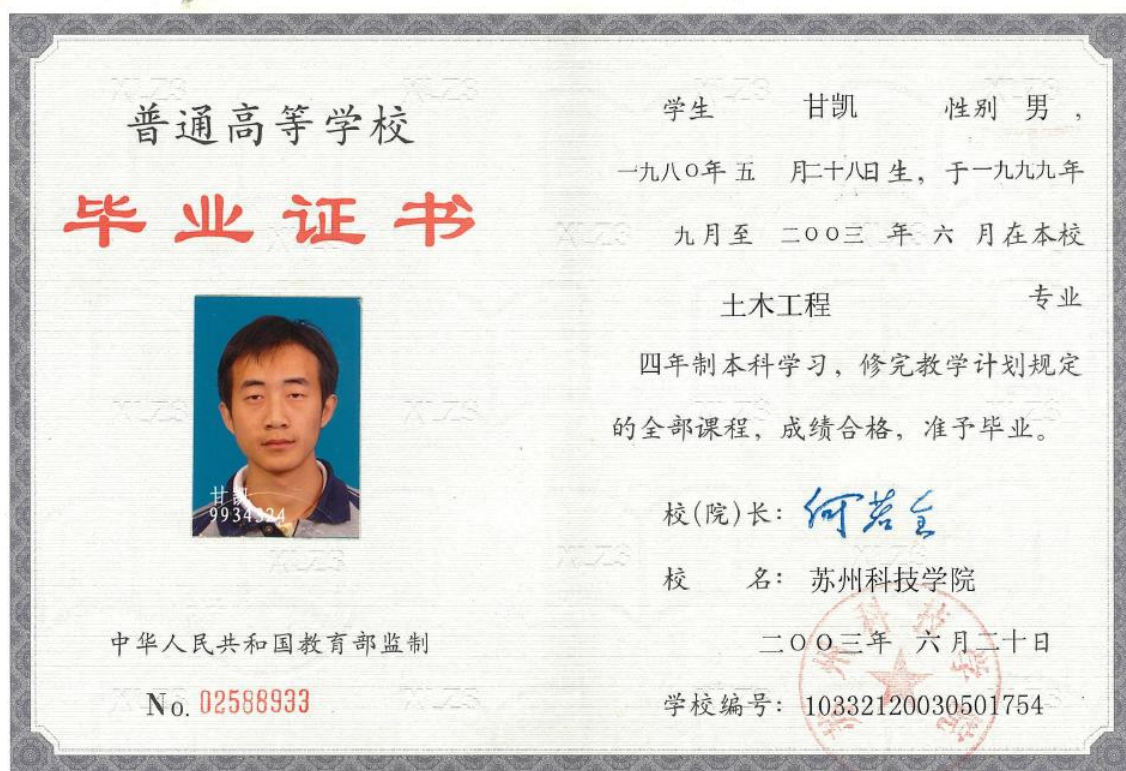 普通高等学校
毕业证书
甘凯
9934324
中华人民共和国教育部监制
No. 02588933
学生 甘凯 性别 男 ,
一九八〇年 五 月二十八日 生, 于一九九九年
九月至 二〇〇三 年 六 月在本校
土木工程 专业
四年制本科学习, 修完教学计划规定
的全部课程, 成绩合格, 准予毕业。
校(院)长: 何若全
校 名: 苏州科技学院
二〇〇三年 六月二十日
学校编号: 10332120030501754
苏州科技学院